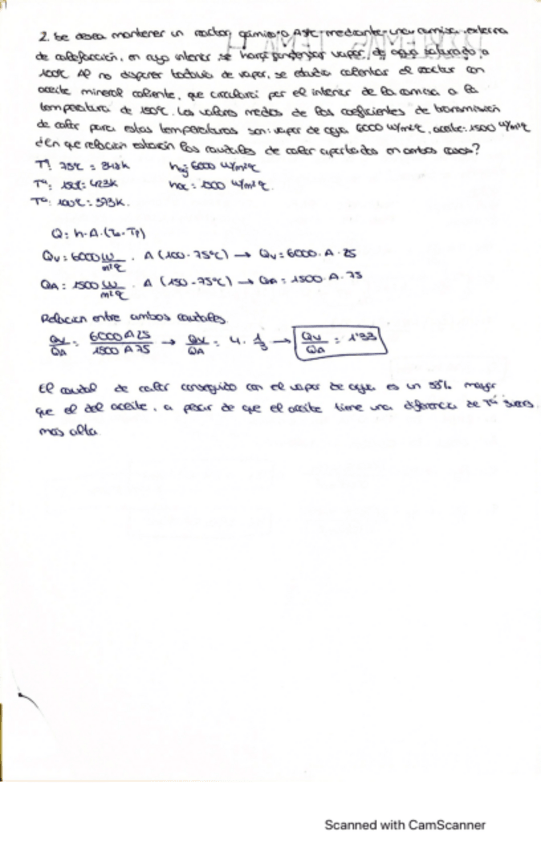 2. Se desea mantener un reactor químico a 75°C mediante una camisa externa
de calefacción, en cuyo interior se hará condensar vapor de agua saturado, a
100°C. Al no disponer todavía de vapor, se estudia calentar el reactor con
aceite mineral caliente, que circulará por el interior de la camisa a la
temperatura de 150°C. Los valores medios de los coeficientes de transmisión
de calor para estas temperaturas son: vapor de agua 6000 W/m²°C, aceite: 1500 W/m²°C
¿En que relación estarán los caudales de calor aportados en ambos casos?
Tª: 75°C = 348K
6000 W/m²°C
Tª: 150°C: 423K
W/m²°C.
Tª: 100°C: 373K.
Q: h.A.(
Qv: 6000 W/m²°C . A (100-75°C) → Qv: 6000. A. 25
QA: 1500 W/m²°C . A (150-75°C) → QA: 1500. A. 75
Relación entre ambos caudales.
Qv/QA = 6000 A 25 / 1500 A 75 → Qv/QA = 4. 1/3 → Qv/QA = 1'33
El caudal de calor conseguido con el vapor de agua es un 33% mayor
que el del aceite, a pesar de que el aceite tiene una diferencia de Tª
más alta.
Scanned with CamScanner